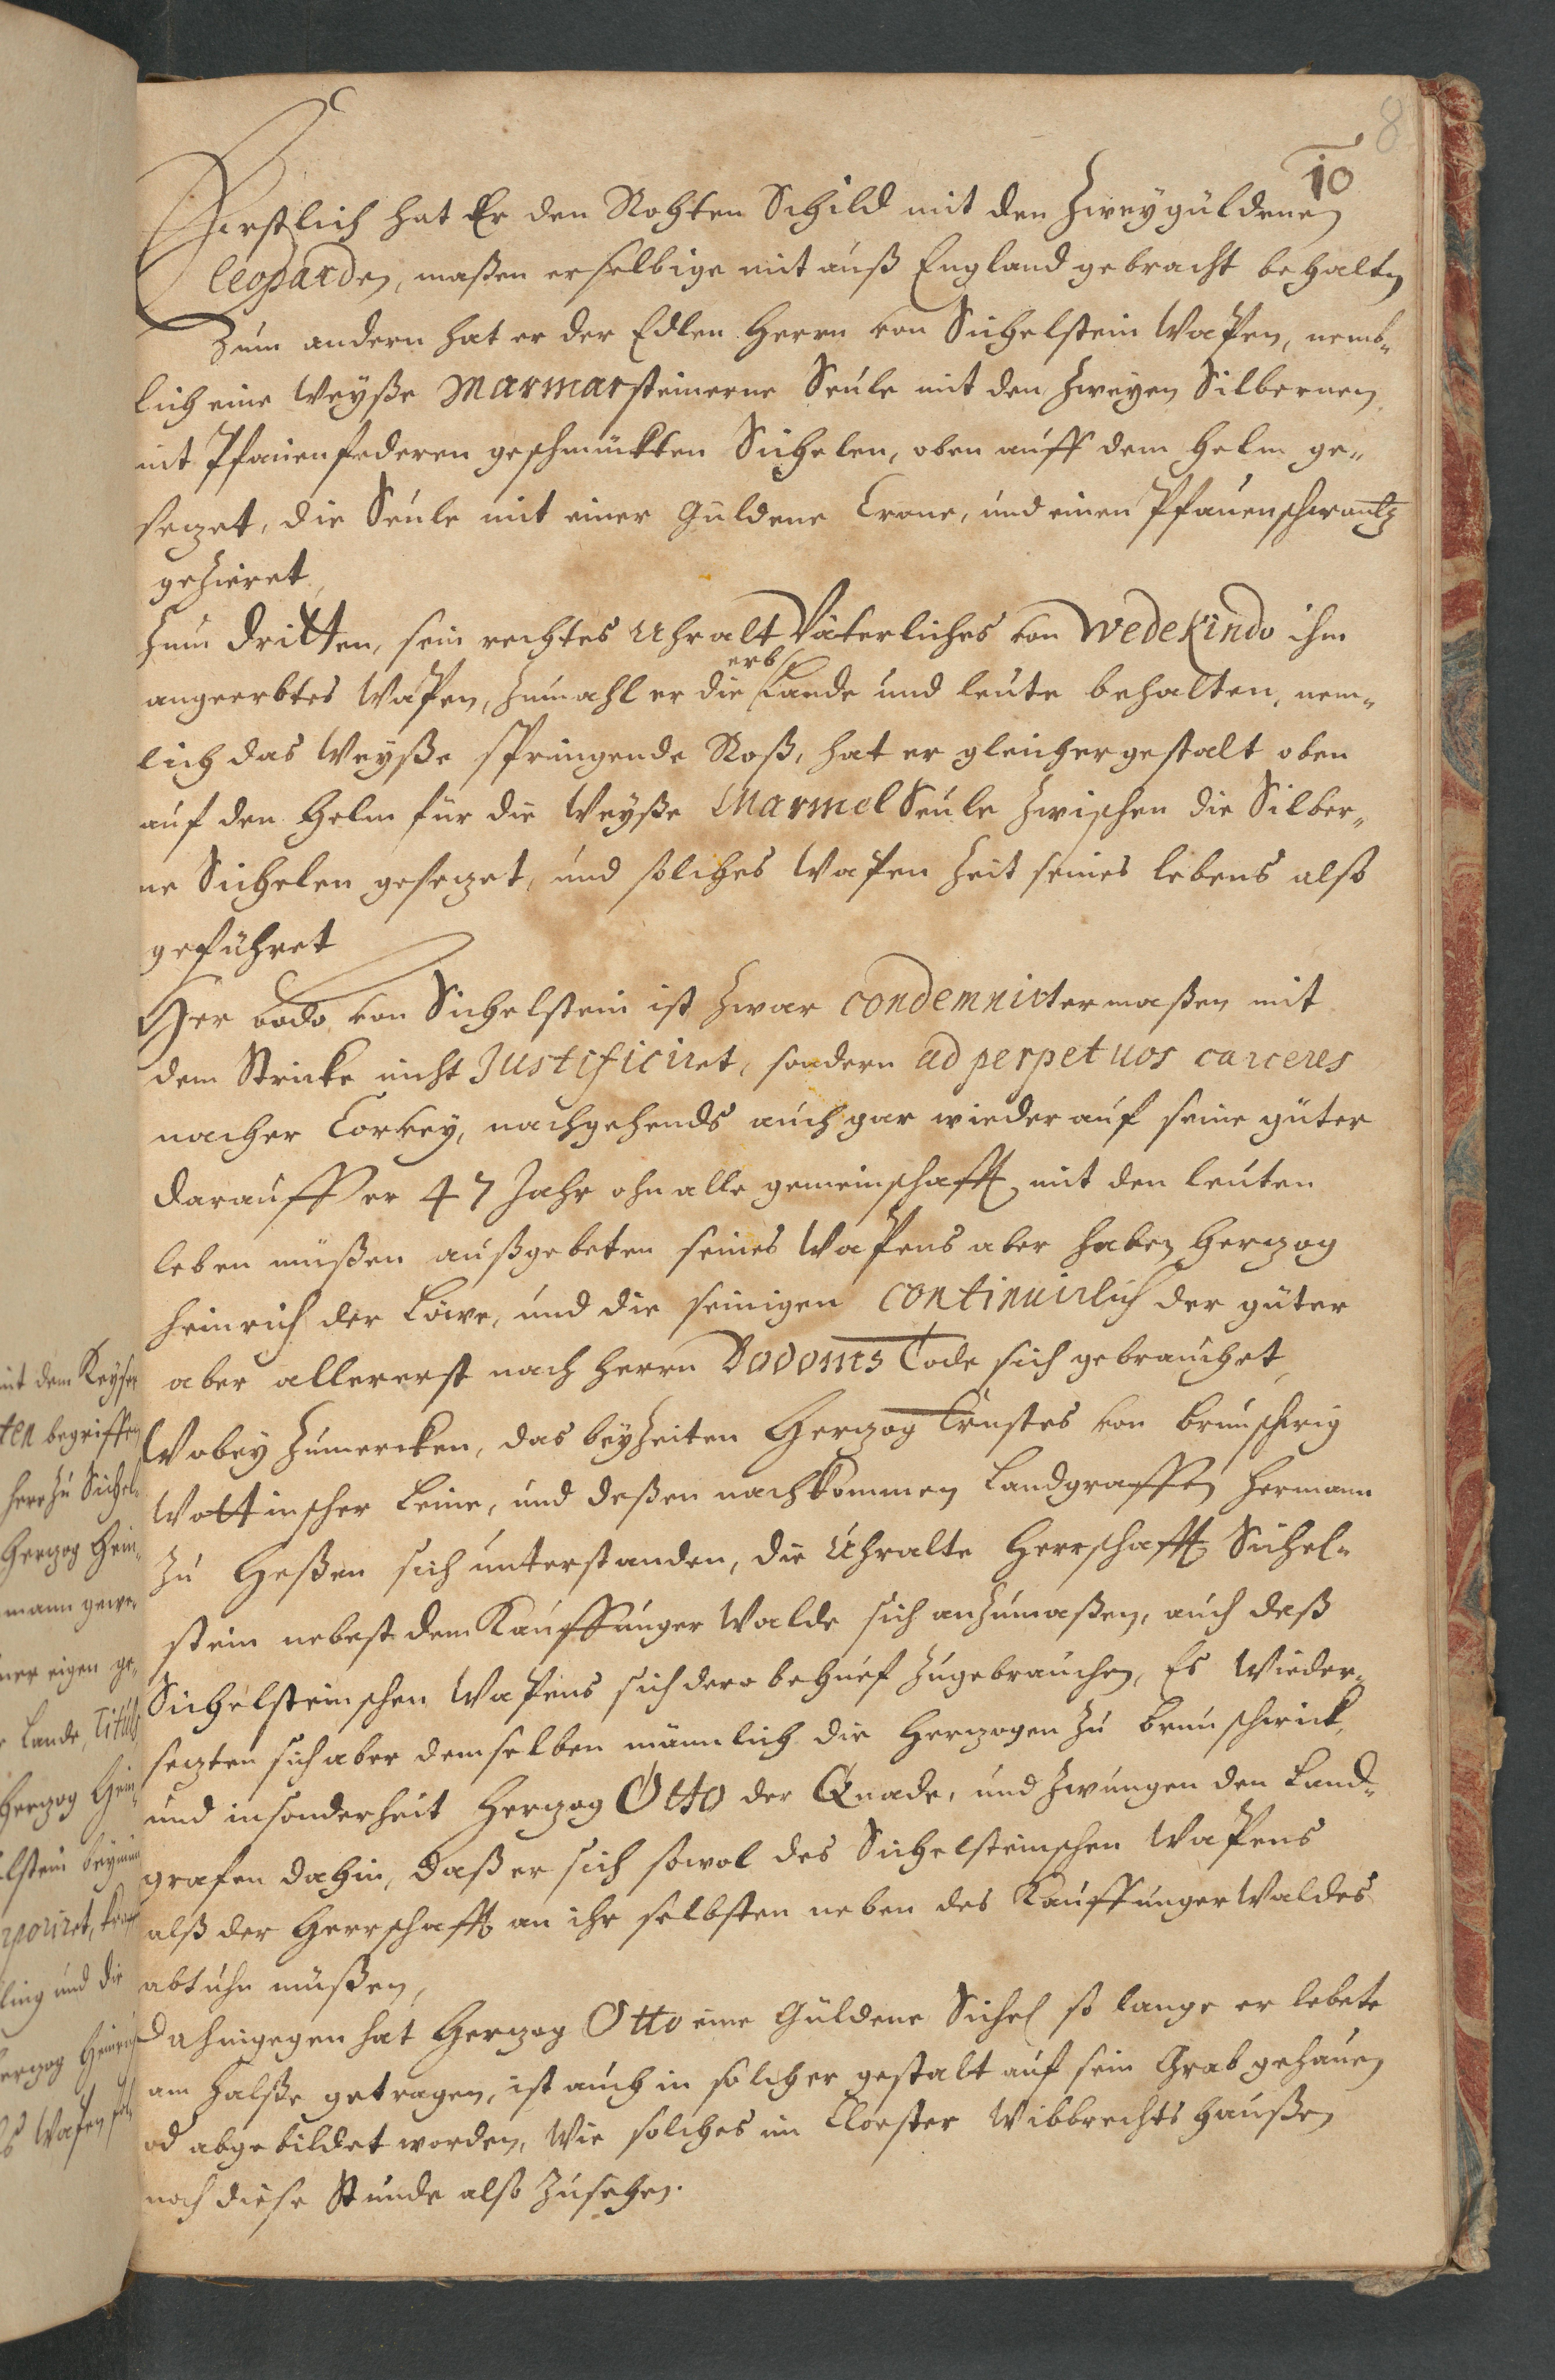 8
10
Erstlich hat Er den Rohten Schild mit den Zwey güldenen
leoparden, maßen er selbige mit auß England gebracht behalten
Zum andern hat er der Edlen Herrn von Sichelstein Wapen, nemb-
lich eine Weyße Marmarsteinerne Seule mit den Zweyen Silbernen
mit Pfauenfederen geschmückten Sichelen, oben auff dem Helm ge-
sezet, die Seule mit einer Guldene Crone, und einen Pfauenschwantz
geZieret
Zum dritten, sein rechtes Uhralt Väterliches von Wedekindo ihm
angeerbtes Wapen, Zumahl er die erb Lande und leute behalten, nem-
lich das Weyße springende Roß, hat er gleichergestalt oben
auf den Helm für die Weyße Marmel Seule Zwischen die Silber-
ne Sichelen gesezet, und solches Wapen Zeit seines lebens also
geführet
Her bodo von Sichelstein ist Zwar condemnirtermaßen mit
dem Stricke nicht Justificiret, sondern ad perpetuos carceres
nacher Corvey, nachgehends auch gar wieder auf seine güter
darauff er 47 Jahr ohn alle gemeinschafft mit den leuten
leben müßen außgebeten seines Wapens aber haben Herzog
Heinrich der Löwe, und die seinigen continuirlich der güter
aber allererst nach Herrn Bodonis Tode sich gebrauchet,
Wobey Zumercken, das bey Zeiten Herzog Ernstes von brunschwig
Wottinscher Leine, und deßen nachkommen Landgraffen Hermann
Zu Heßen sich unterstanden, die Uhralte Herrschafft Sichel-
stein nebest dem Kauffunger Walde sich anZumaßen, auch deß
Sichelsteinschen Wapens sich dero behuef Zugebrauchen, Es Wieder-
sezten sich aber demselben männlich die Herzogen Zu brunschwick,
und insonderheit Herzog Otto der Quade, und Zwungen den Land-
grafen dahin, daß er sich sowol des Sichelsteinschen Wapens
alß der Herrschafft an ihr selbsten neben des Kauffunger Waldes
abtuhn müßen,
Dahingegen hat Herzog Otto eine Güldene Sichel so lange er lebete
am Halße getragen, ist auch in solcher gestalt auf sein Grab gehauen
od abgebildet worden, Wie solches im Cloester Wibbrechtshaußen
noch diese Stunde also Zusehen.
mit dem Keyser
ten begriffen
Herr Zu Sichel-
Herzog Hein-
mann gewe-
ner eigen ge-
Lande, Tituls
Herzog Hein-
lstein
rporiret,
ling und die
erzog Heinrich
Wapen